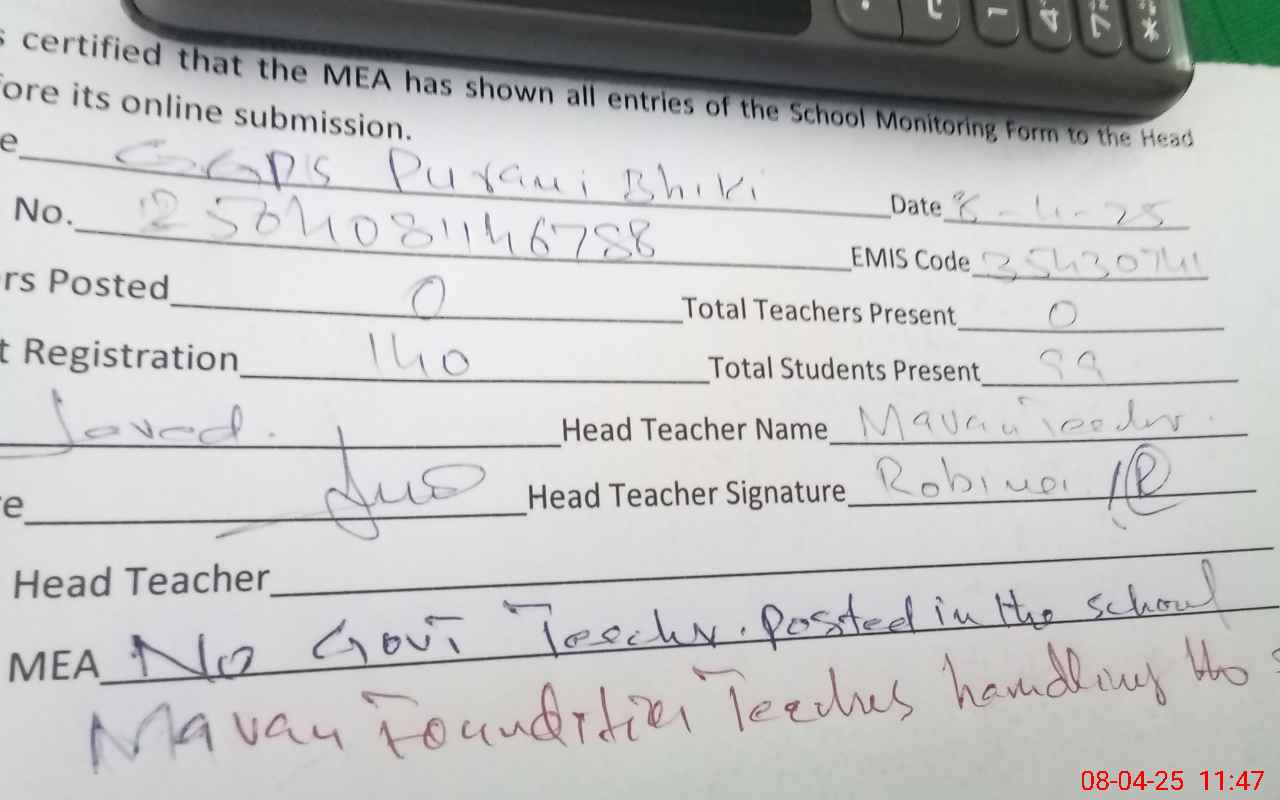 s certified that the MEA has shown all entries of the School Monitoring Form to the Head
fore its online submission.
e GGPS Purani Bhiki Date 8-4-25
No. 2504081146788 EMIS Code 35430741
rs Posted 0 Total Teachers Present 0
t Registration 140 Total Students Present 99
Javed. Head Teacher Name Mavan Teacher.
e Head Teacher Signature Robina
Head Teacher
MEA No Govt Teacher posted in the school
Mavan Foundation Teachers handling the s
08-04-25 11:47